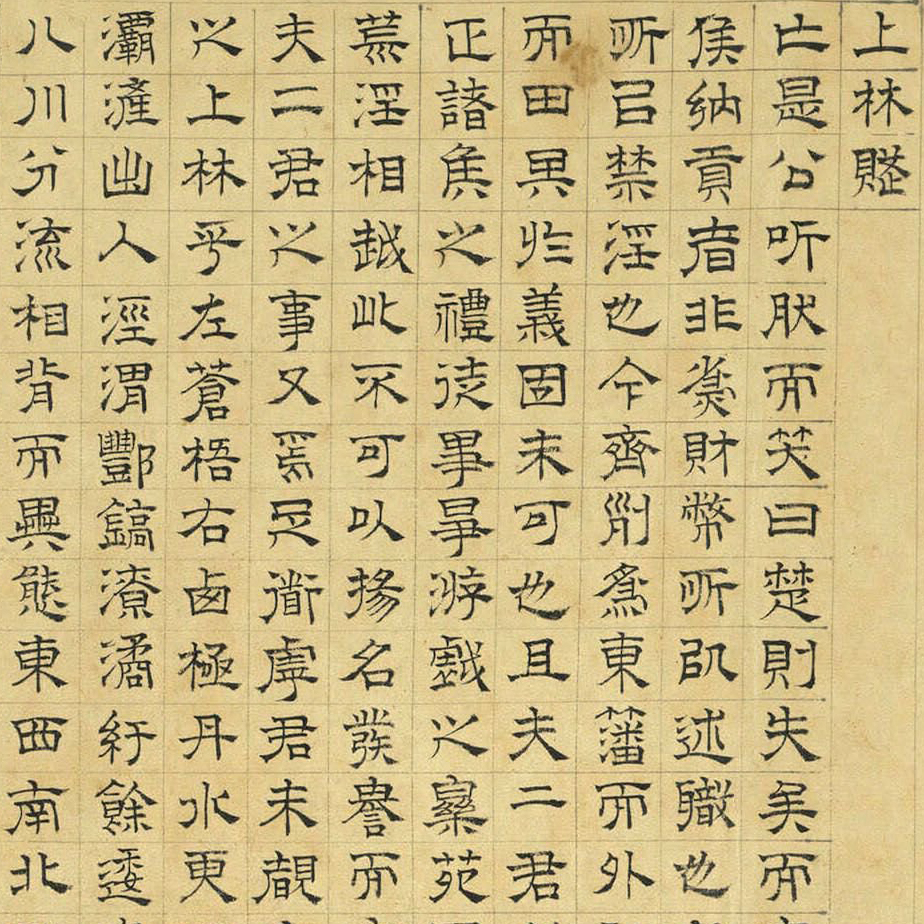 上林賦
亡是公听肰而笑曰楚則失矣而
侯納貢者非爲財幣所以述職也
所以禁淫也今齊列爲東藩而外
而田其於義固未可也且夫二君
正諸侯之禮徒事爭游戲之樂苑
荒淫相越此不可以揚名發譽而
夫二君之事又焉足道虖君未覩
之上林乎左蒼梧右西極丹水更
灞滻出入涇渭酆鎬潦潏紆餘逶
八川分流相背而異態東西南北